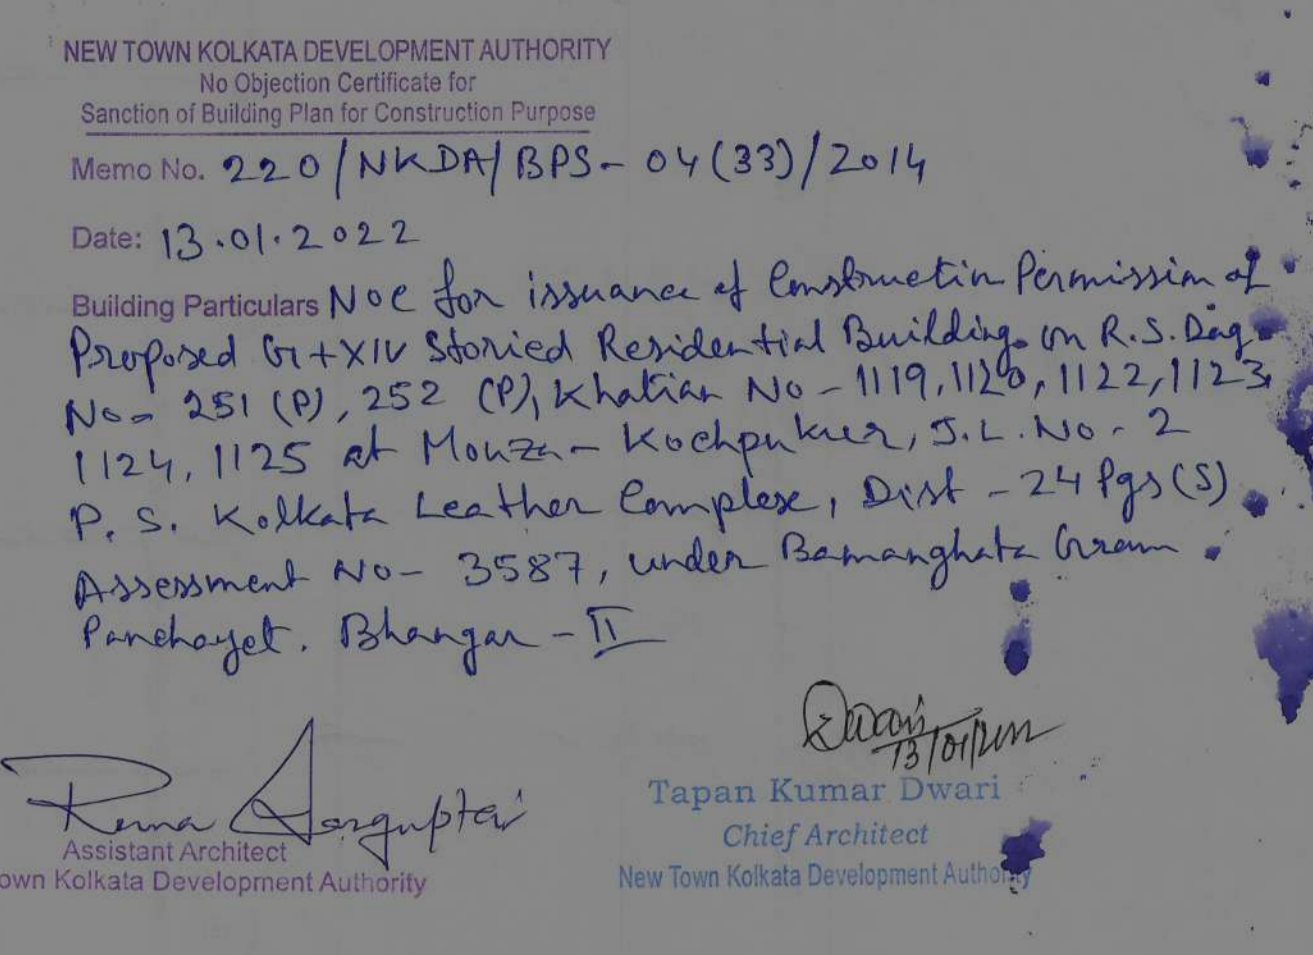 NEW TOWN KOLKATA DEVELOPMENT AUTHORITY
No Objection Certificate for
Sanction of Building Plan for Construction Purpose
Memo No. 220/NKDA/BPS- 04(33)/2014
Date: 13.01.2022
Building Particulars NOC for issuance of Construction Permission of
Proposed G+XIV Storied Residential Building on R.S. Dag
No- 251 (P), 252 (P), Khatian No - 1119, 1120, 1122, 1123,
1124, 1125 at Mouza - Kochpukur, J.L. No - 2
P. S. Kolkata Leather Complex, Dist - 24 Pgs (S)
Assessment No - 3587, under Bamanghata Gram
Panchayet. Bhangar - II
Dwari
13/01/2022
Tapan Kumar Dwari
Chief Architect
New Town Kolkata Development Authority
Assistant Architect
own Kolkata Development Authority